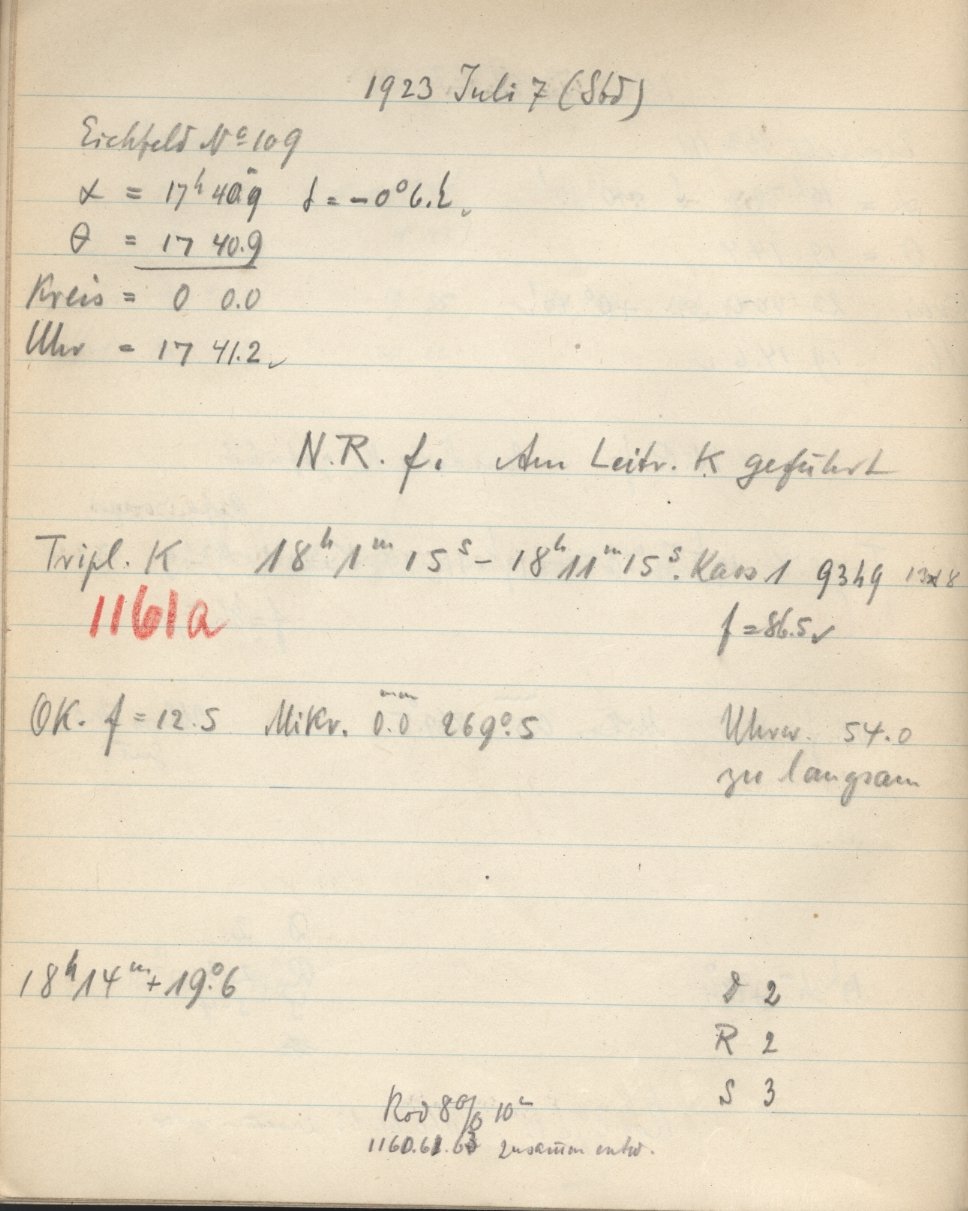 1923 Juli 7 (Sbd)
Eichfeld Nº 109
α = 17ʰ 40ᵐ.9 δ = −0°6.
θ = 17 40.9
Kreis = 0 0.0
Uhr = 17 41.2
N.R. f. Am Leitr. K geführt
Tripl. K 18ʰ 1ᵐ 15ˢ – 18ʰ 11ᵐ 15ˢ. 1 9349 13x18
1161a
f = 86.5
OK. f = 12.5 Mikr. 0.0ᵐᵐ 269°.5 Uhrw. 54.0
zu langsam
18ʰ 14ᵐ + 19°.6
D 2
R 2
S 3
Rod 8% 10ᵐ
1160.61.63 zusammen entw.